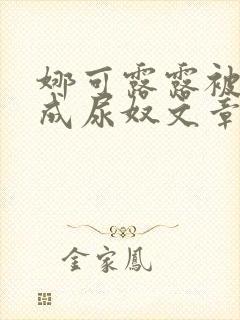 娜可露露被
成尿奴文章
金家鳳